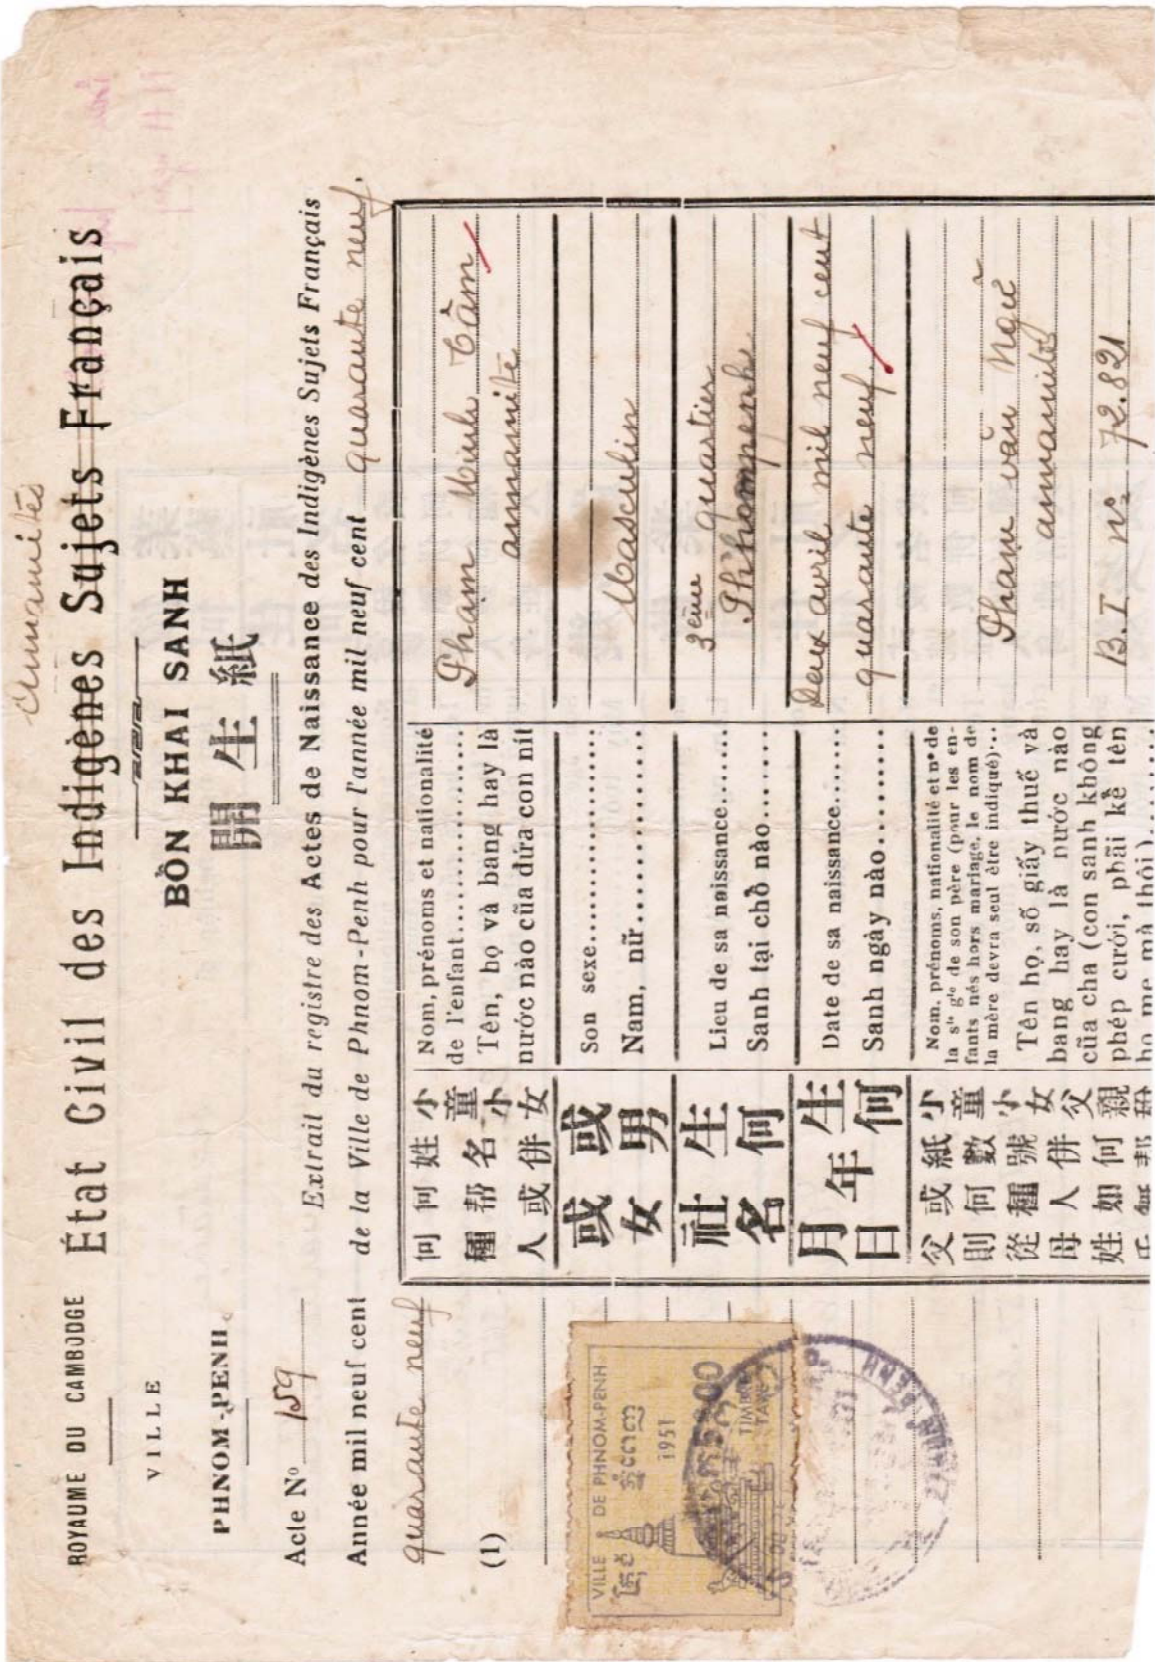 annamites
ROYAUME DU CAMBODGE
VILLE
PHNOM-PENH
Acte Nº 159
Année mil neuf cent
quarante neuf
(1)
VILLE DE PHNOM-PENH
1951
TIMBRE
TAXE
État Civil des Indigènes Sujets Français
BỒN KHAI SANH
開生紙
Extrait du registre des Actes de Naissance des Indigènes Sujets Français
de la Ville de Phnom-Penh pour l'année mil neuf cent quarante neuf.
何何姓小
種帮名童
人或併小女
Nom, prénoms et nationalité
de l'enfant
Tên, họ và bang hay là
nước nào của đứa con nít
Phạm Minh Tâm
annamite
或或
女男
Son sexe
Nam, nữ
Masculin
社生
名何
Lieu de sa naissance
Sanh tại chỗ nào
3ème quartier
Phnompenh
月年生
日何
Date de sa naissance
Sanh ngày nào
Deux avril mil neuf cent
quarante neuf.
父或紙小
則何數童
從種號小
母人併女父
姓如何親
Nom, prénoms, nationalité et nº de
la s^te g^le de son père (pour les en-
fants nés hors mariage, le nom de
la mère devra seul être indiqué)
Tên họ, số giấy thuế và
bang hay là nước nào
của cha (con sanh không
phép cưới, phải kể tên
họ mẹ mà thôi)
Phạm văn Ngữ
annamites
B.I nº 72.821